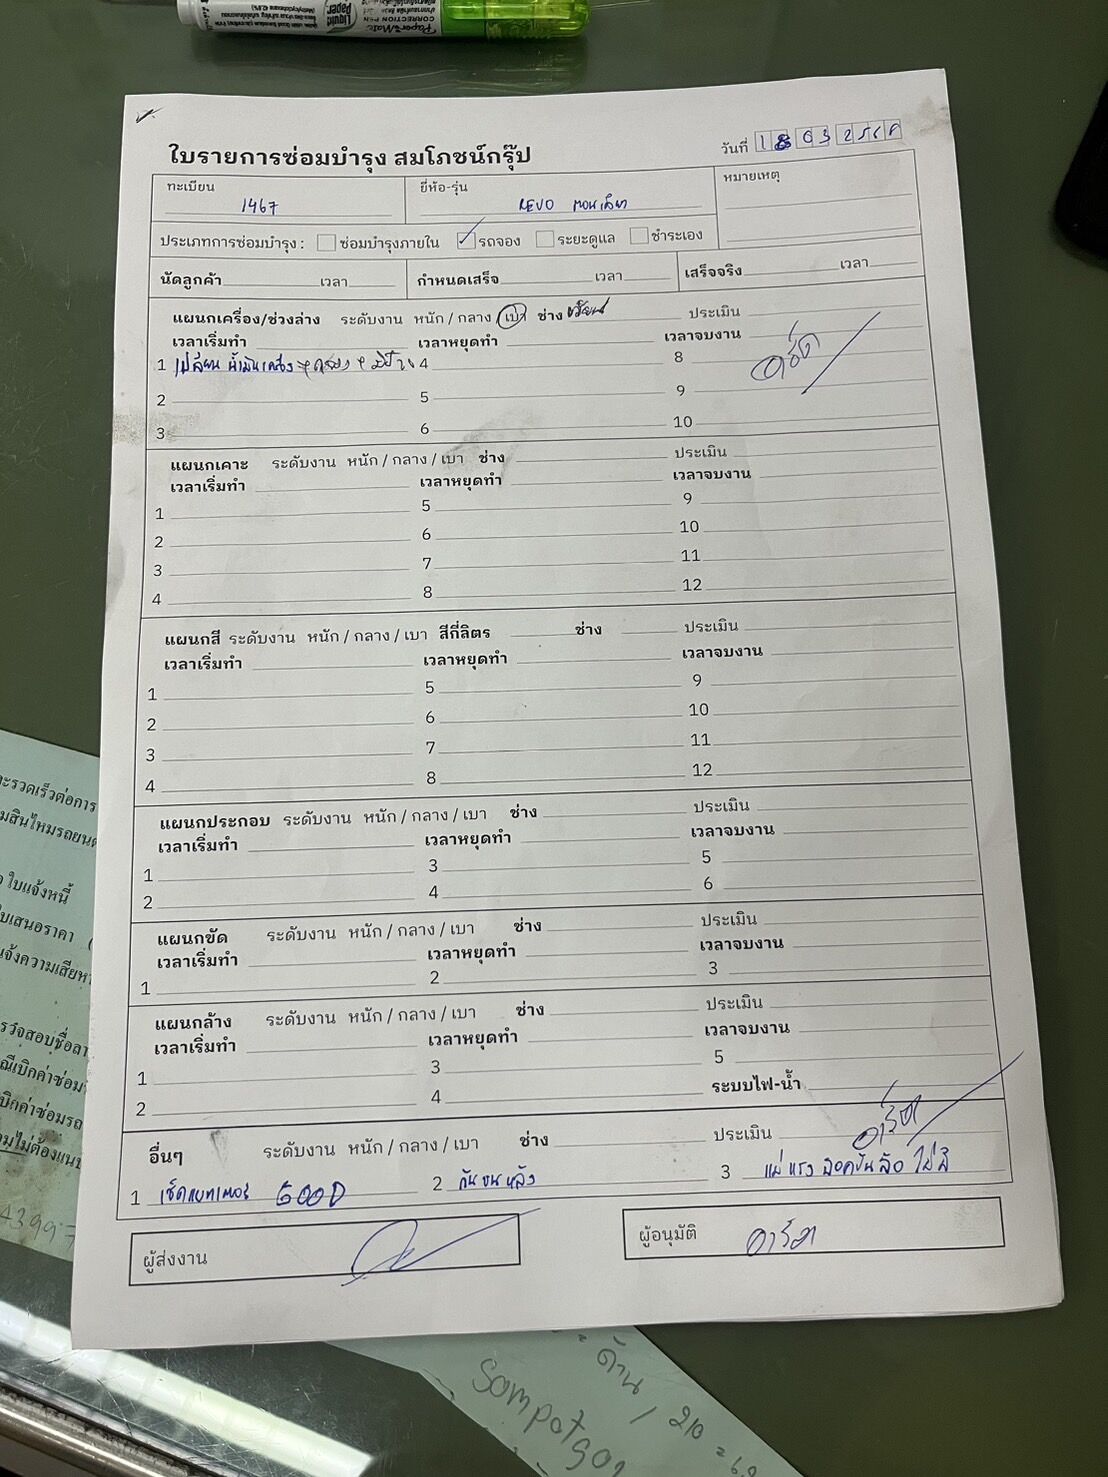 Liquid Paper
Paper Mate
CORRECTION PEN
ใบรายการซ่อมบำรุง สมโภชน์กรุ๊ป
วันที่ 18 03 256
ทะเบียน 1467
ยี่ห้อ-รุ่น REVO ตอนเดียว
หมายเหตุ
ประเภทการซ่อมบำรุง : ซ่อมบำรุงภายใน รถจอง ระยะดูแล ชำระเอง
นัดลูกค้า เวลา กำหนดเสร็จ เวลา เสร็จจริง เวลา
แผนกเครื่อง/ช่วงล่าง ระดับงาน หนัก / กลาง / เบา ช่าง ประเมิน
เวลาเริ่มทำ เวลาหยุดทำ เวลาจบงาน
1 เปลี่ยน น้ำมันเครื่อง + กรอง + 4 8
2 5 9
3 6 10
แผนกเคาะ ระดับงาน หนัก / กลาง / เบา ช่าง ประเมิน
เวลาเริ่มทำ เวลาหยุดทำ เวลาจบงาน
1 5 9
2 6 10
3 7 11
4 8 12
แผนกสี ระดับงาน หนัก / กลาง / เบา สีกี่ลิตร ช่าง ประเมิน
เวลาเริ่มทำ เวลาหยุดทำ เวลาจบงาน
1 5 9
2 6 10
3 7 11
4 8 12
แผนกประกอบ ระดับงาน หนัก / กลาง / เบา ช่าง ประเมิน
เวลาเริ่มทำ เวลาหยุดทำ เวลาจบงาน
1 3 5
2 4 6
แผนกขัด ระดับงาน หนัก / กลาง / เบา ช่าง ประเมิน
เวลาเริ่มทำ เวลาหยุดทำ เวลาจบงาน
1 2 3
แผนกล้าง ระดับงาน หนัก / กลาง / เบา ช่าง ประเมิน
เวลาเริ่มทำ เวลาหยุดทำ เวลาจบงาน
1 3 5
2 4 ระบบไฟ-น้ำ
อื่นๆ ระดับงาน หนัก / กลาง / เบา ช่าง ประเมิน
1 เช็คแบตเตอรี่ GOOD 2 กันชนหลัง 3 แม่แรง ล้อ ไม่มี
ผู้ส่งงาน
ผู้อนุมัติ
ะรวดเร็วต่อการ
มสินไหมรถยนต
ใบแจ้งหนี้
ใบเสนอราคา (
แจ้งความเสียห
รวจสอบชื่อสา
ณีเบิกค่าซ่อม
บิกค่าซ่อมรถ
อมไม่ต้องแนบ
4399
ด้าน / 210
Sompotgo